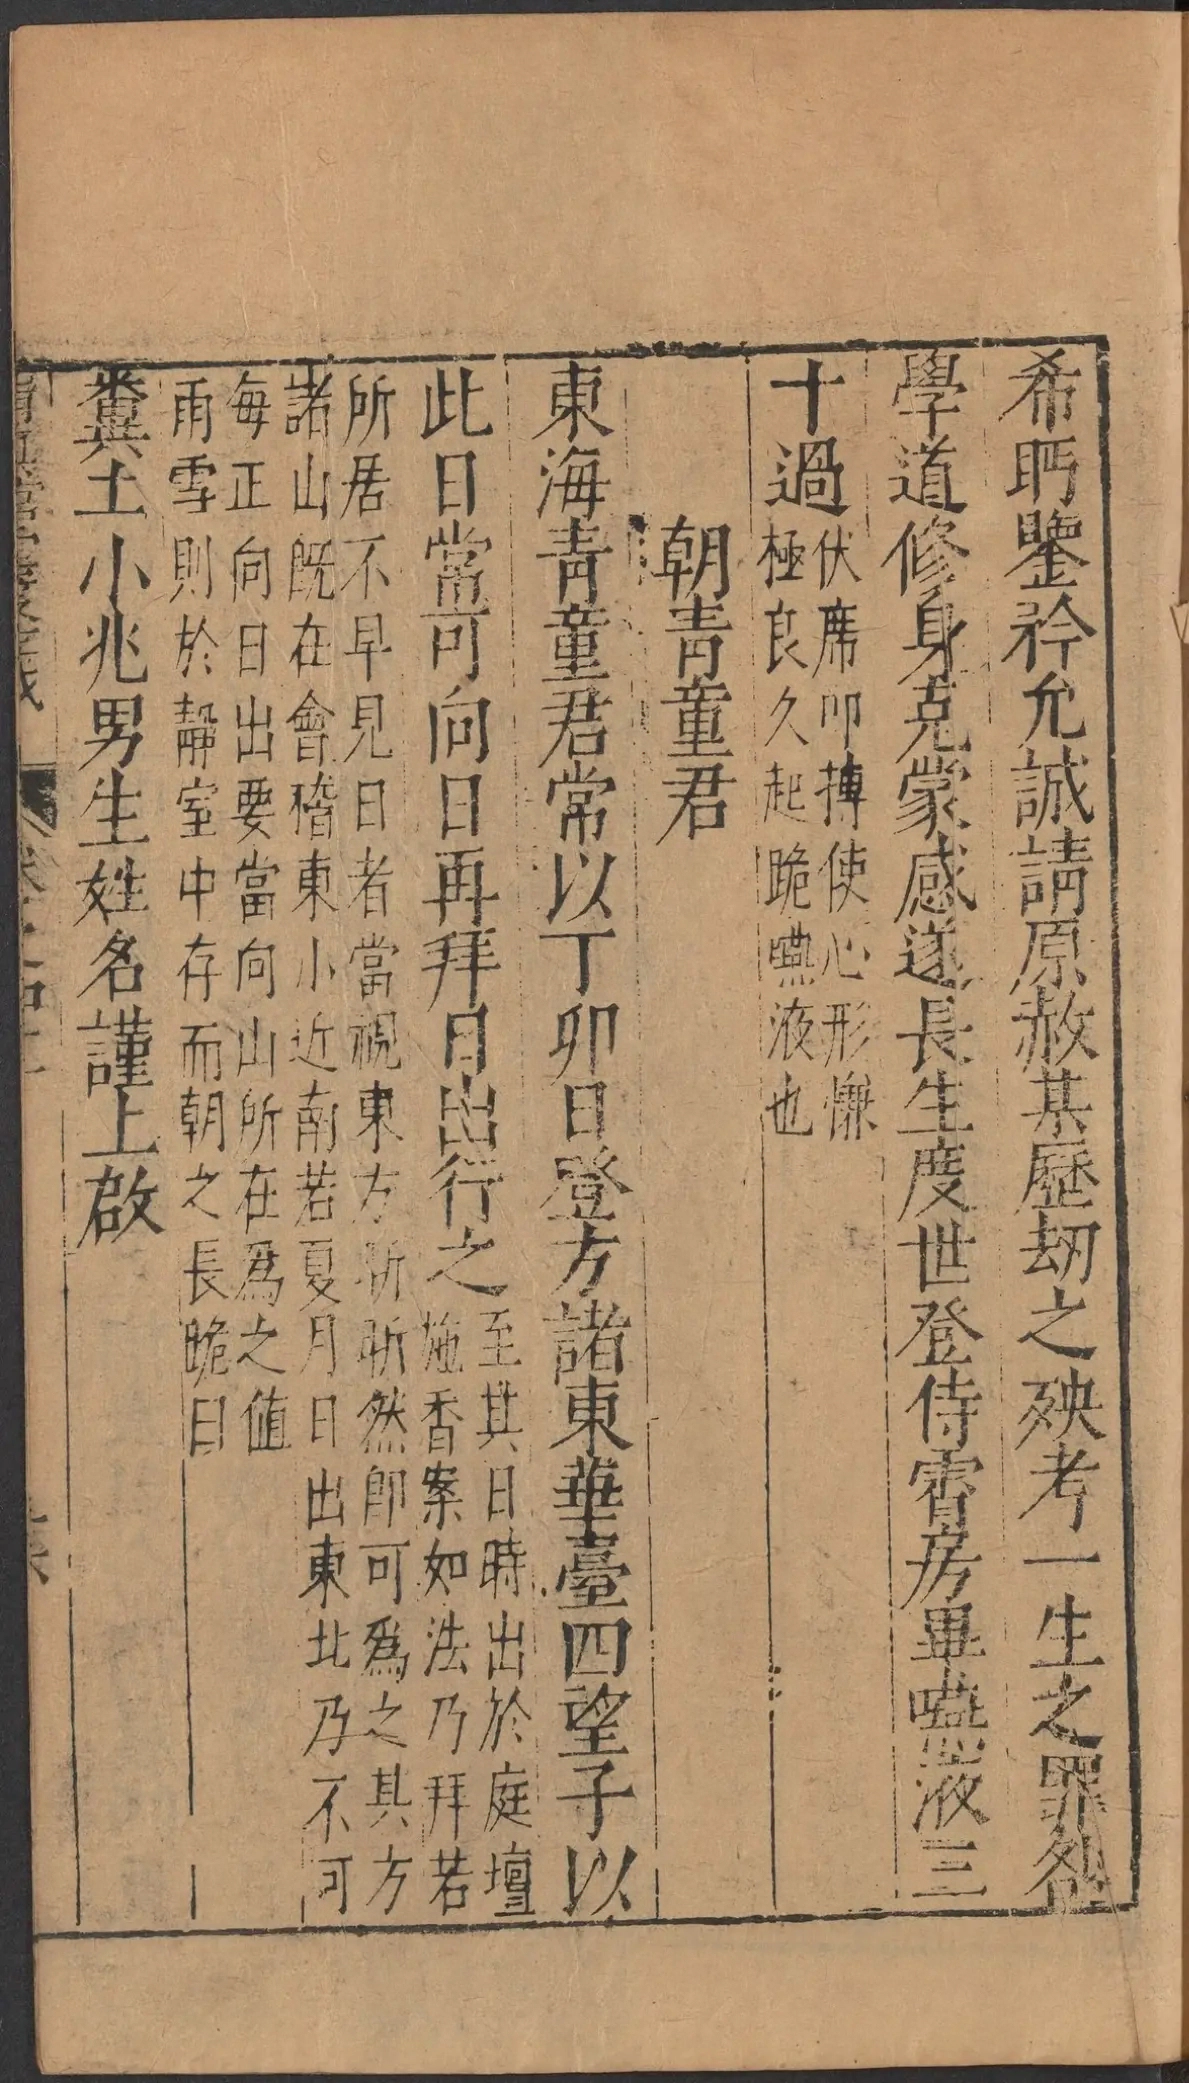 希眄鑒矜允誠請原赦某歷刼之殃考一生之罪咎
學道修身克蒙感遂長生度世登侍霄房畢嚥液三
十過
伏席叩摶使心形慊
極良久起跪嚥液也
朝青童君
東海青童君常以丁卯日登方諸東華臺四望子以
此日常可向日再拜日出行之
至其日時出於庭壇
施香案如法乃拜若
所居不早見日者當視東方昕昕然即可爲之其方
諸山既在會稽東小近南若夏月日出東北乃不可
每正向日出要當向山所在爲之值
雨雪則於靜室中存而朝之長跪曰
糞土小兆男生姓名謹上啟